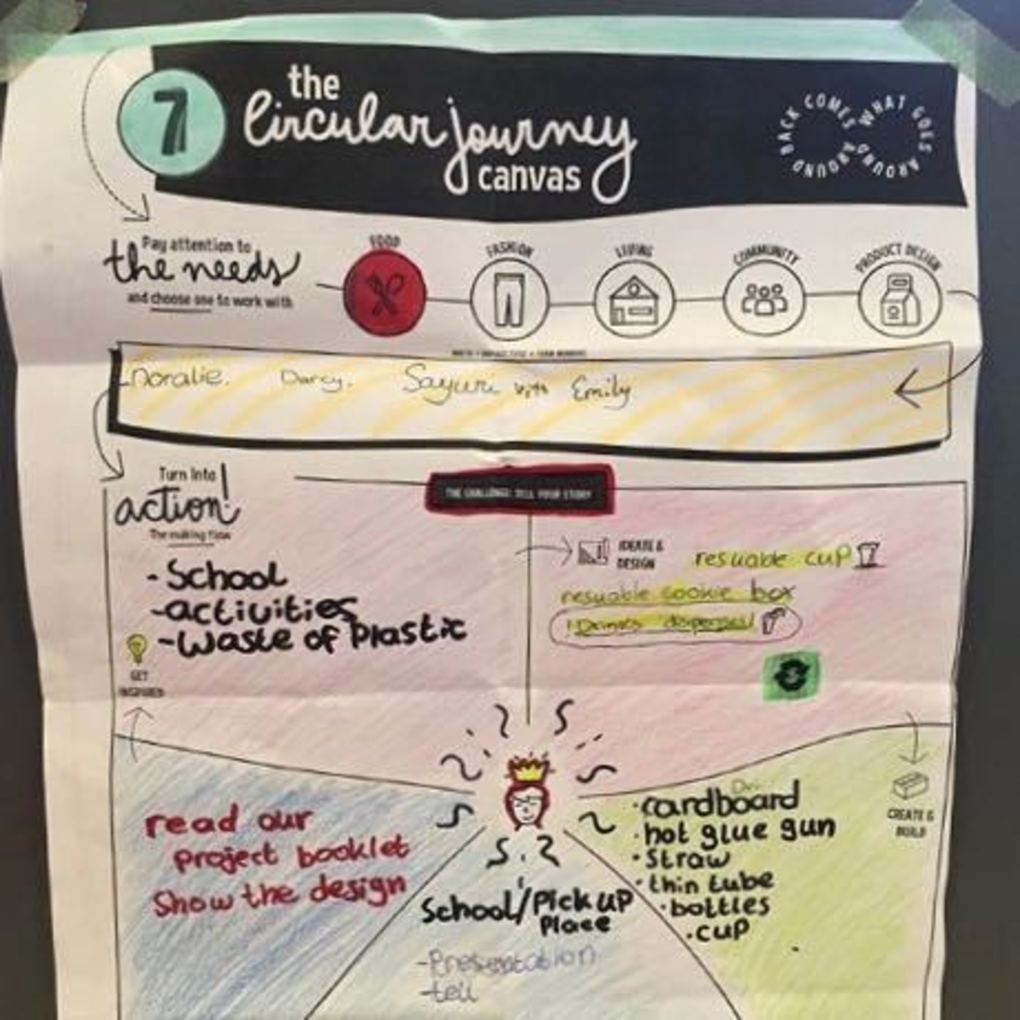 7
the
Circular journey
canvas
BACK COMES AROUND
WHAT GOES AROUND
Pay attention to
the needs
and choose one to work with
FOOD
FASHION
LIVING
COMMUNITY
PRODUCT DESIGN
Noralie. Darcy. Sayuri with Emily
Turn Into
action!
The making flow
THE CHALLENGE: TELL YOUR STORY
- School
- activities
- Waste of Plastic
GET
INSPIRED
IDEATE &
DESIGN
resuable cup
resuable cookie box
Drinks dispenser!
read our
project booklet
Show the design
School/Pick up
Place
- Presentation
- tell
· cardboard
· hot glue gun
· Straw
· thin tube
· bottles
· cup
CREATE &
BUILD